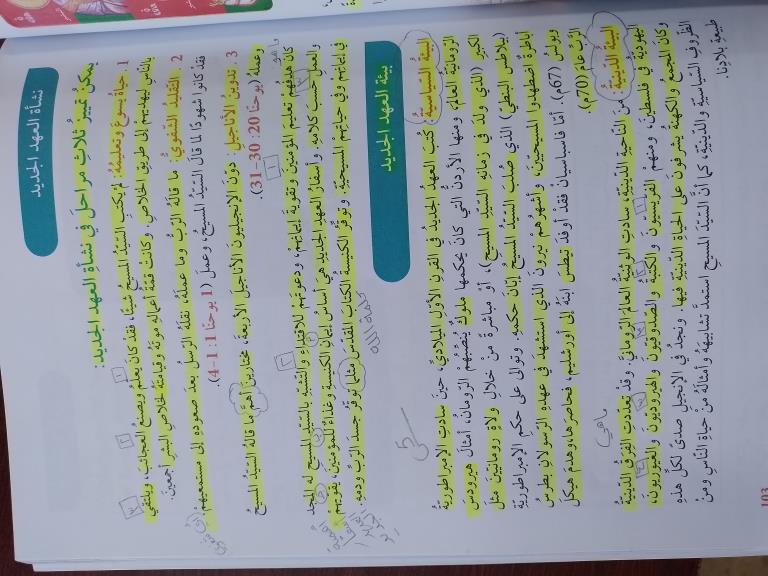 نشأة العهد الجديد
يمكنُ تمييزُ ثلاثِ مراحلَ في نشأةِ العهدِ الجديدِ:
1. حياةُ يسوعَ وتعليمُه: لم يكتبِ السيّدُ المسيحُ شيئًا، فقدْ كانَ يعلّمُ ويصنعُ العجائبَ، ويلتقي
بالناسِ ليهديَهم إلى طريقِ الخلاصِ. وكانتْ قمّةُ أعمالِه موتَهُ وقيامتَهُ لخلاصِ البشرِ أجمعينَ.
2. التقليدُ الشفويُّ: ما قالَهُ الرّبُّ وما عملَهُ، نقلَهُ الرسلُ بعدَ صعودِهِ إلى مستمعيهم
فقدْ كانُوا شهودًا لما قالَ السّيّدُ المسيحُ، وعمل (1 يوحنا 1: 1-4).
3. تدوينُ الأناجيلِ: دوّنَ الإنجيليونَ الأناجيلَ الأربعةَ، مختارينَ أهمَّ ما قالَهُ السّيّدُ المسيحُ
وعملَهُ (يوحنا 20: 30-31).
كانَ هدفُهم تعليمَ المؤمنينَ وتقويةَ إيمانِهم، ودعوتَهم للاقتداءِ والتشبّهِ بالسّيّدِ المسيحِ له المجد
والعملَ حسبَ كلامِهِ. وأسفارُ العهدِ الجديدِ هي أساسُ إيمانِ الكنيسةِ وغذاءٌ للمؤمنينَ، يقوّيهم
في إيمانِهم وفي حياتِهمُ المسيحيّةِ. وتوقّرُ الكنيسةُ الكتابَ المقدّسَ مثلما توقّرُ جسدَ الرّبِّ ودمَهُ.
كلمة الله
بيئة العهد الجديد
البيئةُ السّياسيّةُ: كُتبَ العهدُ الجديدُ في القرنِ الأوّلِ الميلاديِّ، حينَ سادتِ الإمبراطوريّةُ
الرّومانيّةُ العالمَ، ومنها الأردنُّ التي كانَ يحكمُها ملوكٌ يُنصّبُهم الرّومانُ، أمثالَ هيرودسَ
الكبيرِ (الذي ولدَ في زمانِه السّيّدُ المسيحُ)، أو مباشرةً من خلالِ ولاةٍ رومانيّينَ مثلَ
(بيلاطسَ البنطيِّ) الذي صُلبَ السّيّدُ المسيحُ إبّانَ حكمِهِ. وتوالى على حكمِ الإمبراطوريّةِ
أباطرةٌ اضطهدوا المسيحيّينَ، وأشهرُهم نيرونَ الذي استشهدَ في عهدِهِ الرّسولانِ بطرسُ
وبولسُ (67م). أمّا فاسباسيانُ فقدْ أوفدَ تيطسَ ابنَهُ إلى أورشليمَ، فحاصرَها، وهدمَ هيكلَ
الرّبِّ عام (70م).
ما هي
البيئةُ الدّينيّةُ: منَ النّاحيةِ الدّينيّةِ، سادتِ الوثنيّةُ العالمَ الرّومانيَّ. وقدْ تعدّدتِ الفرقُ الدّينيّةُ
اليهوديّةُ في فلسطينَ، ومنهمُ الفرّيسيّونَ والكتبةُ والصّدوقيّونَ والهيروديّونَ والغيورونَ،
وكانَ المجمعُ والكهنةُ يشرفونَ على الحياةِ الدّينيّةِ فيها. ونجدُ في الإنجيلِ صدىً لكلِّ هذهِ
الظّروفِ السّياسيّةِ والدّينيّةِ، كما أنَّ السّيّدَ المسيحَ استمدَّ تشابيهَهُ وأمثالَهُ منْ حياةِ النّاسِ ومنْ
طبيعةِ بلادِنا.
103